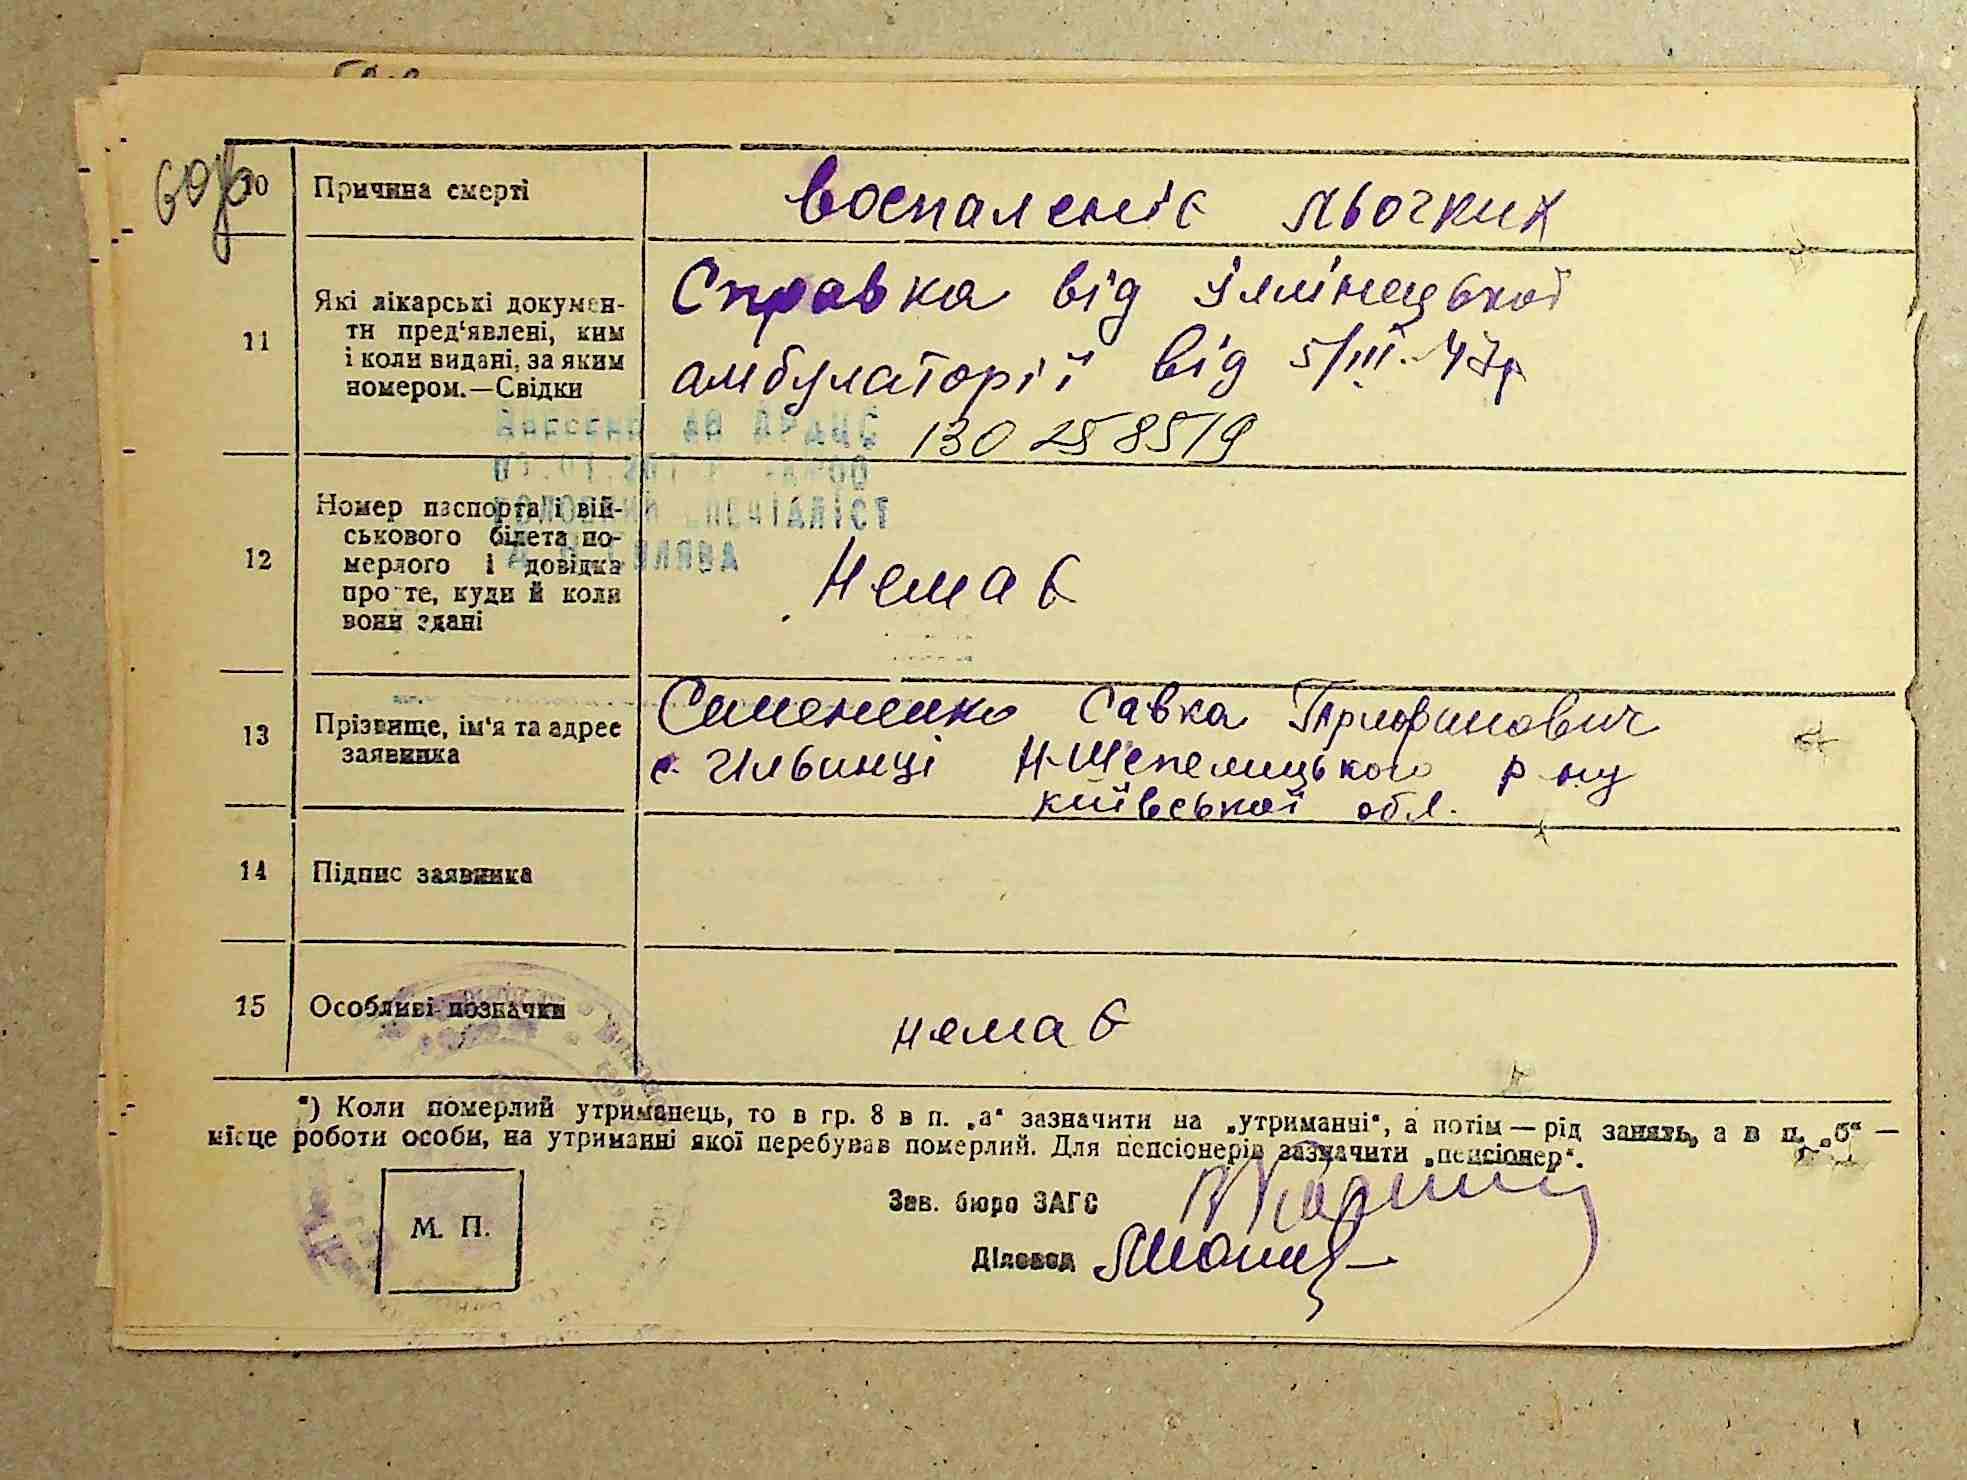 60
10 Причина смерті воспаленіє льогких
11 Які лікарські докумен-
ти пред'явлені, ким
і коли видані, за яким
номером.—Свідки
Справка від Іллінецької
амбулаторії від 5/III-47р
130 258519
12 Номер паспорта і вій-
ськового білета по-
мерлого і довідка
про те, куди й коли
вони здані
Немає
ГОЛОВНИЙ СПЕЦІАЛІСТ
13 Прізвище, ім'я та адрес
заявника
Симененко Савка Трифинович
с. Ильинці Н-Шепелицького р-ну
київської обл.
14 Підпис заявника
15 Особливі позначки немає
*) Коли померлий утриманець, то в гр. 8 в п. „а" зазначити на „утриманні", а потім — рід занять, а в п. „б" —
місце роботи особи, на утриманні якої перебував померлий. Для пенсіонерів зазначити „пенсіонер".
М. П.
Зав. бюро ЗАГС
Діловод